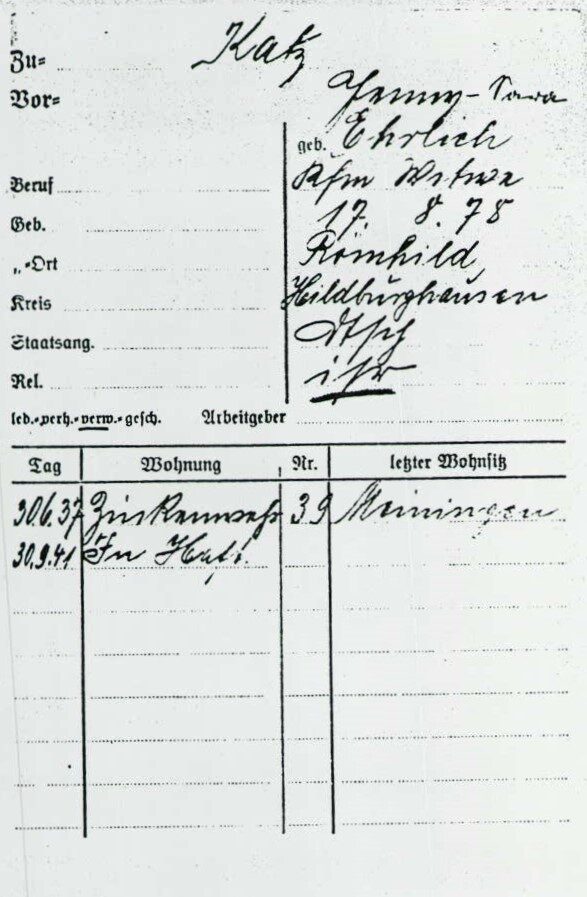 Zu= Katz
Vor= Jenny-Sara
geb. Ehrlich
Beruf Kfm Witwe
Geb. 17. 8. 78
„=Ort Römhild
Kreis Hildburghausen
Staatsang. dtsch
Rel. isr
led.=verh.=verw.=gesch. Arbeitgeber
Tag Wohnung Nr. letzter Wohnsitz
30.6.37 39 Meiningen
30.9.41 In Haft.